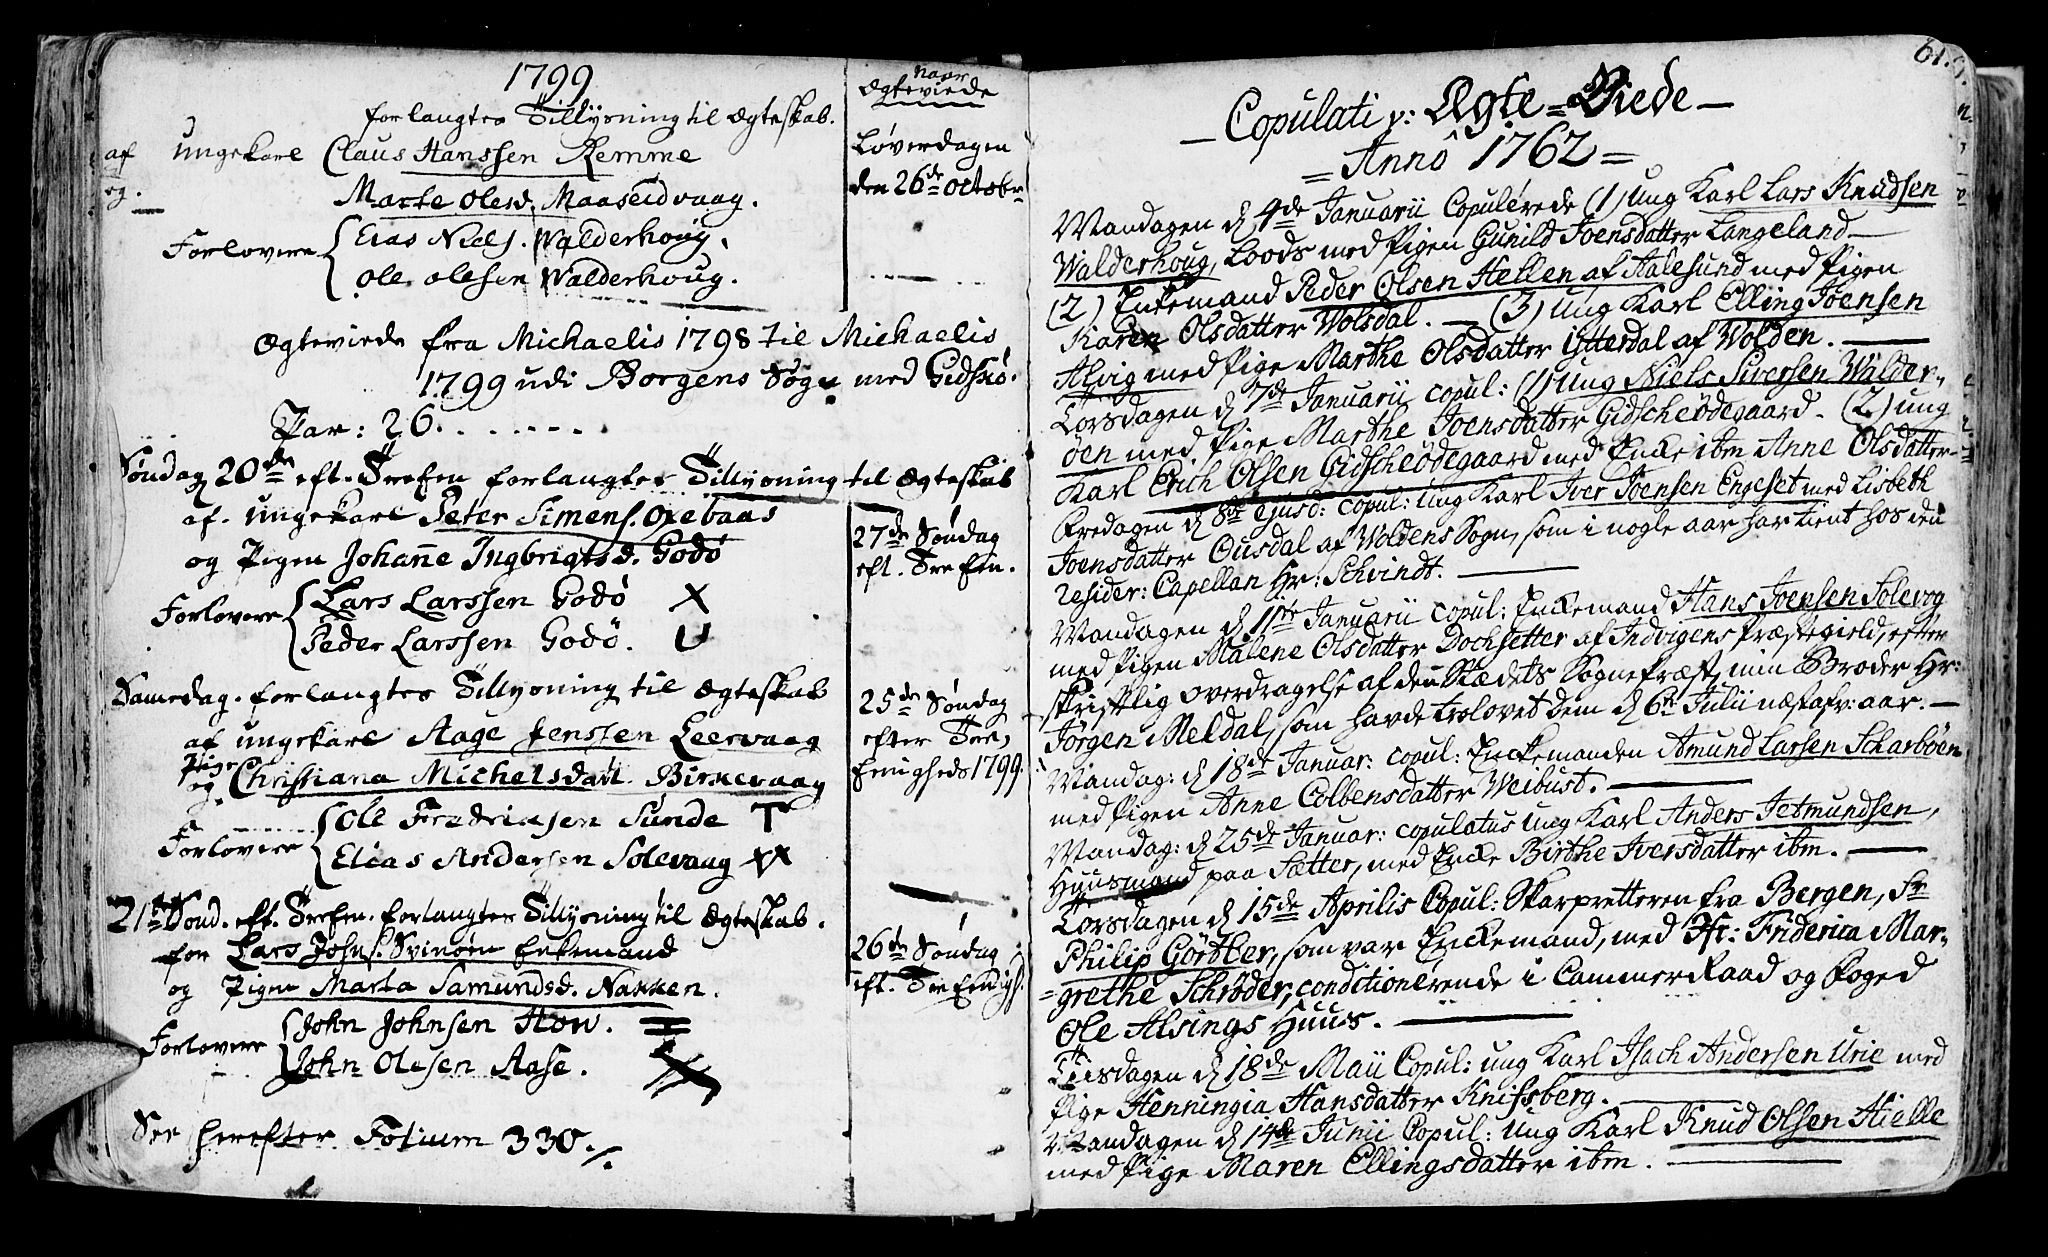 1799
forlangtes Tillysning til Ægteskab.
naar
Ægteviede
af Ungekarl Claus Hanssen Remme
og.
Marte Olesd. Maaseidvaag.
Løverdagen
den 26de October
Forlovere Elias Niels. Walderhoug.
Ole Olesen Walderhoug.
Ægteviede fra Michaelis 1798 til Michaelis
1799 udi Borgens Sogn med Gidskø.
Par: 26.
Søndag 20de eft. Trefen forlangtes Tillysning til Ægteskab
af. Ungekarl Peter Simens. Oxebaas
og Pigen Johanne Ingbrigtsd. Godø
27de Søndag
eft. Trefen.
Forlovere Lars Larssen Godø X
Peder Larssen Godø. U
Samedag. forlangtes Tillysning til Ægteskab
af ungekarl Aage Jenssen Leervaag
Pigen
og Christiana Michelsdatt. Birkevaag
25de Søndag
efter Tree,
Enigheds 1799.
Forlovere Ole Fredrichsen Sunde T
Elias Andersen Solevaag XX
21de Sønd. eft. Trefen. forlangtes Tillysning til Ægteskab.
for Lars Johns. Svinøen Enkemand
og Pigen Marta Samundsd. Nakken.
26de Søndag
eft. Tre Enigh.
Forlovere John Johnsen How.
John Olesen Aase.
See herefter Folium 330./.
61.
Copulati ɔ: Ægte=Viede
Anno 1762
Mandagen d 4de Januarii Copulerede (1) ung Karl Lars Knudsen
Walderhoug, Loods med Pigen Gunild Joensdatter Langeland
(2) Enkemand Peder Olsen Hellen af Aalesund med Pigen
Karen Olsdatter Wolsdal. (3) ung Karl Elling Joensen
Alvig med Pige Marthe Olsdatter Ytterdal af Wolden.
Torsdagen d 7de Januarii copul: (1) ung Niels Siversen Walder-
øen med Pige Marthe Joensdatter Gidscheødegaard. (2) ung
Karl Erich Olsen Gidscheødegaard med Encke ibm Anne Olsdatter
Fredagen d 8de ejusd: copul: ung Karl Iver Joensen Engeset med Lisbeth
Joensdatter Ousdal af Woldens Sogn, som i nogle aar har tient hos den
resider: Capellan Hr: Schvindt.
Mandagen d 11te Januarii copul: Enckemand Hans Joensen Solevog
med Pigen Malene Olsdatter Dochsetter af Indvigens Præstegield, efter
skriftlig overdragelse af den Stædets Sognepræst, min Broder Hr:
Jørgen Meldal, som havde trolovet dem d 6te Julii næstafv: aar.
Mandag: d 18de Januar: copul: Enckemanden Amund Larsen Scharbøen
med Pigen Anne Colbensdatter Weibust.
Mandag: d 25de Januar: copulatus ung Karl Anders Jetmundsen,
Huusmand paa Sætter, med Encke Birthe Iversdatter ibm.
Torsdagen d 15de Aprilis Copul: Skarpretteren fra Bergen, Sr
Philip Görtber, som var Enckemand, med Jfr: Friderica Mar-
grethe Schrøder, conditionerende i CammerRaad og Foged
Ole Alsings Huus.
Tiisdagen d 18de Maii Copul: ung Karl Isach Andersen Urie med
Pige Henningia Hansdatter Knifsberg.
Mandagen d 14de Junii Copul: ung Karl Knud Olsen Hielle
med Pige Maren Ellingsdatter ibm.